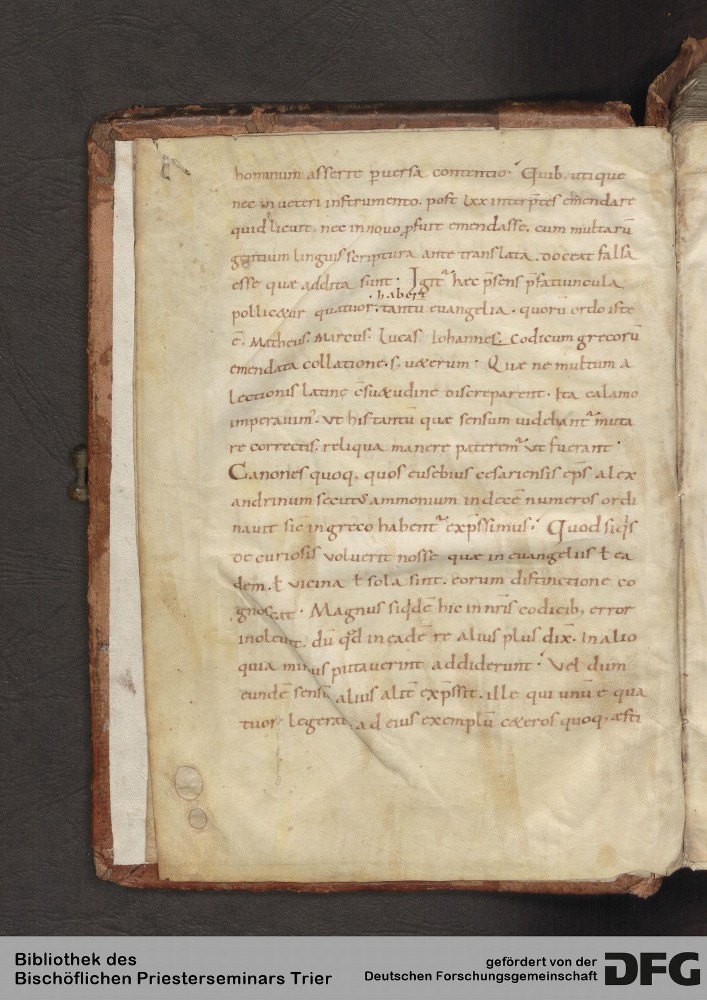 hominum asserit ꝑuersa contentio. Quib, utique
nec in ueteri instrumento. post lxx interp̄tes emendare
quid licuit. nec in nouo ꝓfuit emendasse. cum multarū
gentium linguis scriptura ante translata. doceat falsa
esse quæ addita sunt. Igit᷑ hæc p̄sens p̄fatiuncula
habent᷑
pollic&ur quatuor. tantū euangelia. quorū ordo iste
ē. Matheus. Marcus. Lucas Iohannes. codicum grecorū
emendata collatione. s; u&erum. Quæ ne multum a
lectionis latine c̄su&udine discreparent. Ita calamo
imperauimꝰ. Ut his tantū quæ sensum uidebant᷑ muta
re correctis. reliqua manere pateremꝰ ut fuerant.
Canones quoq, quos eusebius cesariensis ep̄s alex
andrinum secutus ammonium in decē numeros ordi
nauit sic̄ in greco habent᷑ exp̄ssimus. Quod siq̇s
de curiosis uoluerit nosse quæ in euangeliis ł ea
dem. ł uicina ł sola sint. eorum distinctione co
gnoscat. Magnus siq̇dē hic in nr̄is codicib, error
inoleuit. dū qd̄ in eadē re alius plus dix̄. In alio
quia minus putauerint addiderunt. Vel dum
eundē sensū alius alit̄ exp̄ssit. ille qui unū e qua
tuor legerat. ad eius exemplū c&eros quoq. æsti
Bibliothek des
Bischöflichen Priesterseminars Trier
gefördert von der
Deutschen Forschungsgemeinschaft
DFG